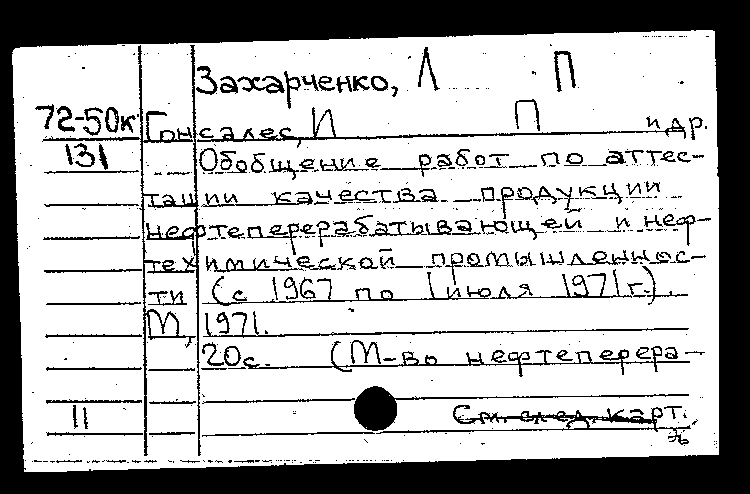 Захарченко, Л П
72-50к Гонсалес, И П и др.
131 Обобщение работ по аттес-
тации качества продукции
нефтеперерабатывающей и неф-
техимической промышленнос-
ти (с 1967 по 1 июля 1971 г.).
М, 1971.
20с. (М-во нефтеперера-
11 См. след. карт.